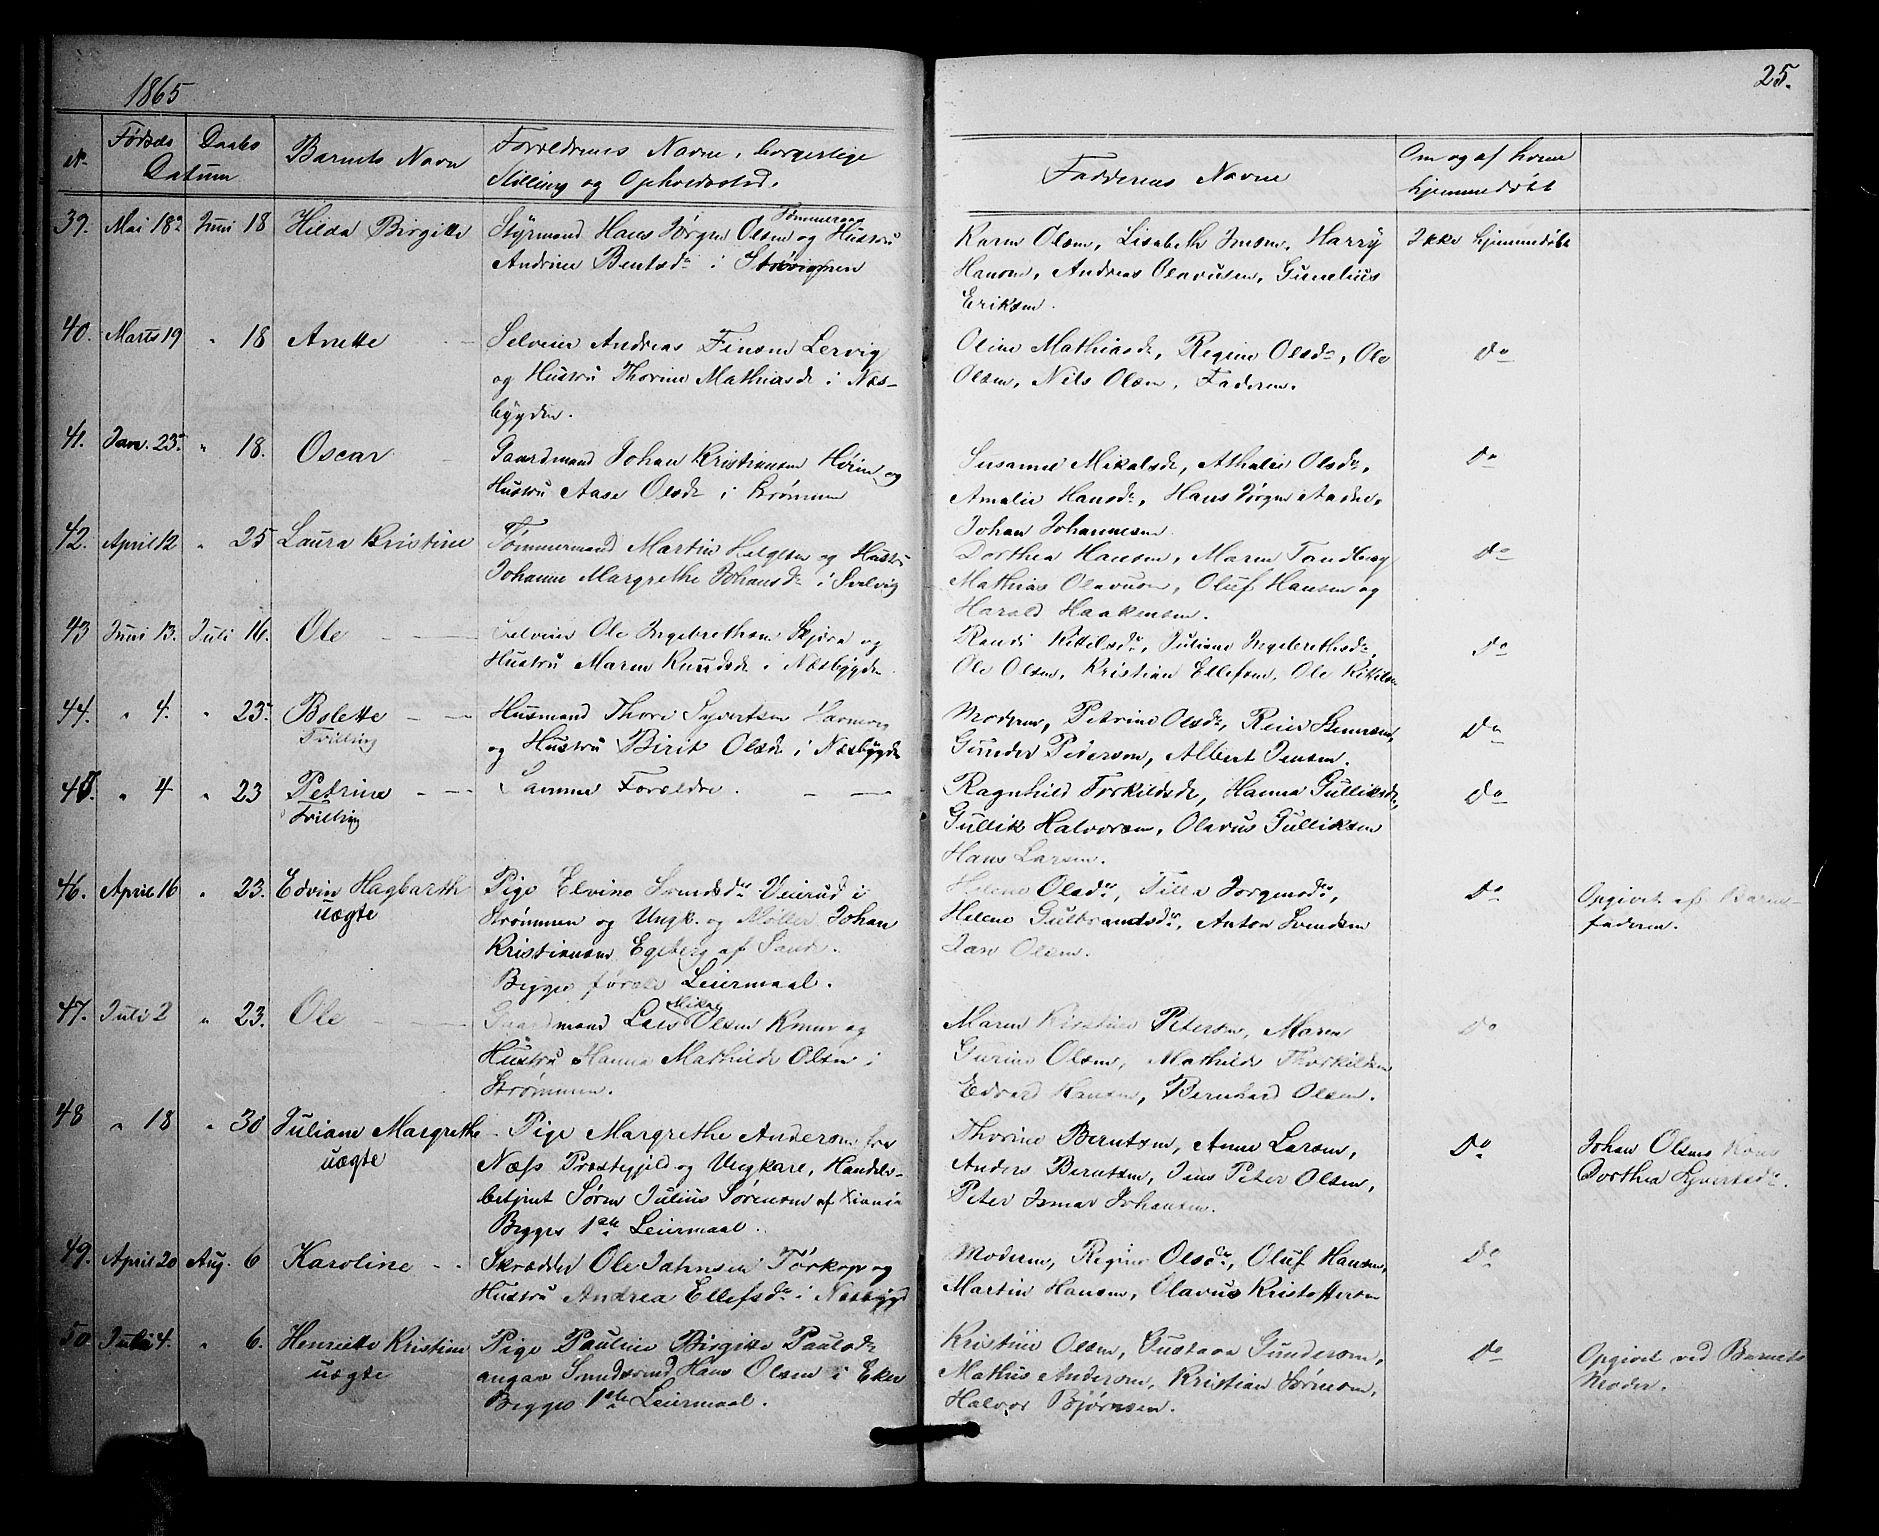 1865
25.
No Fødsels Daabs Barnets Navn Forældrenes Navne, borgerlige
Datum Stilling og Opholdssted.
Faddernes Navne Om og af hvem
hjemmedøbt
39. Mai 18 Juni 18 Hilda Birgitte Styrmand Hans Jørgen Olsen Tømmeraas og Hustru
Andrine Bentsdr i Strømmen
Karen Olsen, Lisabeth Jensen, Harry
Hansen, Andreas Olavusen, Gunelius
Eriksen.
Ikke hjemmedøbt
40. Marts 19 " 18 Anette Selveier Andreas Finsen Lervig
og Hustru Thorine Mathiasdr i Næs-
bygden.
Oline Mathiasdr, Regine Olsdr, Ole
Olsen, Nils Olsen, Faderen.
Do
41. Jan. 23. " 18. Oscar Gaardmand Johan Kristiansen og
Hustru Aase Olsdr i Strømmen
Susanne Mikalsdr, Athalie Olsdr,
Amalie Hansdr, Hans Jørgen
Johan Johannesen
Do
42. April 12 " 25 Laura Kristine Tømmermand Martin Helgesen og Hustru
Johanne Margrethe Johansdr i Svelvig
Dorthea Hansen, Maren Tandberg
Mathias Olavusen, Oluf Hansen og
Harald Haakensen.
Do
43 Juni 13. Juli 16. Ole Selveier Ole Ingebrethsen og
Hustru Maren Knudsdr i Næsbygden
Randi Kittelsdr, Juliane Ingebrethsdr,
Ole Olsen, Kristian Ellefsen, Ole Kittilsen
Do
44. " 4. " 23. Bolette Husmand Thore Syvertsen
Tvilling
og Hustru Birit Olsdr i Næsbygden
Moderen, Petrine Olsdr, Reier
Gunder Pedersen, Albert Jensen.
Do
45. " 4 " 23 Petrine Samme Forældre.
Tvilling
Ragnhild Torkildsdr, Hanna Gulliksdr,
Gullik Halvorsen, Olavus Gulliksen
Hans Larsen.
Do
46. April 16 " 23. Edvin Hagbarth Pige Elvine Svendsdr Veierud i
uægte
Strømmen og Ungk. og Møller Johan
Kristiansen Egeberg af Sande.
Begges første Leiermaal.
Helene Olsdr, Tilla Jorgensdr,
Helene Gulbrandsdr, Anton Svendsen
Jan Olsen.
Do
Opgivet af Barne-
faderen.
47. Juli 2 " 23. Ole Gaardmand Lars Mikal Olsen og
Hustru Hanna Mathilde Olsen i
Strømmen.
Maren Kirstine Petersen, Maren
Gurine Olsen, Mathilde Thorkildsen
Edvard Hansen, Bernhard Olsen.
Do
48 " 18 " 30 Juliane Margrethe Pige Margrethe Andersen
uægte
Næss Præstegjeld og Ungkarl, Handels-
betjent Søren Julius Sørensen af Xiania
Begges 1ste Leiermaal.
Thorine Berntsen, Anne Larsen,
Anders Berntsen, Jens Peter Olsen,
Peter Ismar Johansen.
Do
Johan Olsens Kone
Dorthea Syvertsdr.
49. April 20 Aug. 6 Karoline Skrædder Ole Jahnsen Tørkop og
Hustru Andrea Ellefsdr i Næsbygd
Moderen, Regine Olsdr, Oluf Hansen,
Martin Hansen, Olavus Kristoffersen
Do
50. Juli 4. " 6. Henriette Kristine Pige Pauline Birgitte Paulsdr
uægte
angav Hans Olsen i Eker
Begges 1ste Leiermaal.
Kristine Olsen, Gustava Gundersen,
Mathis Andersen, Kristian Sørensen,
Halvor Bjørnsen.
Do
Opgivet ved Barnets
Moder.